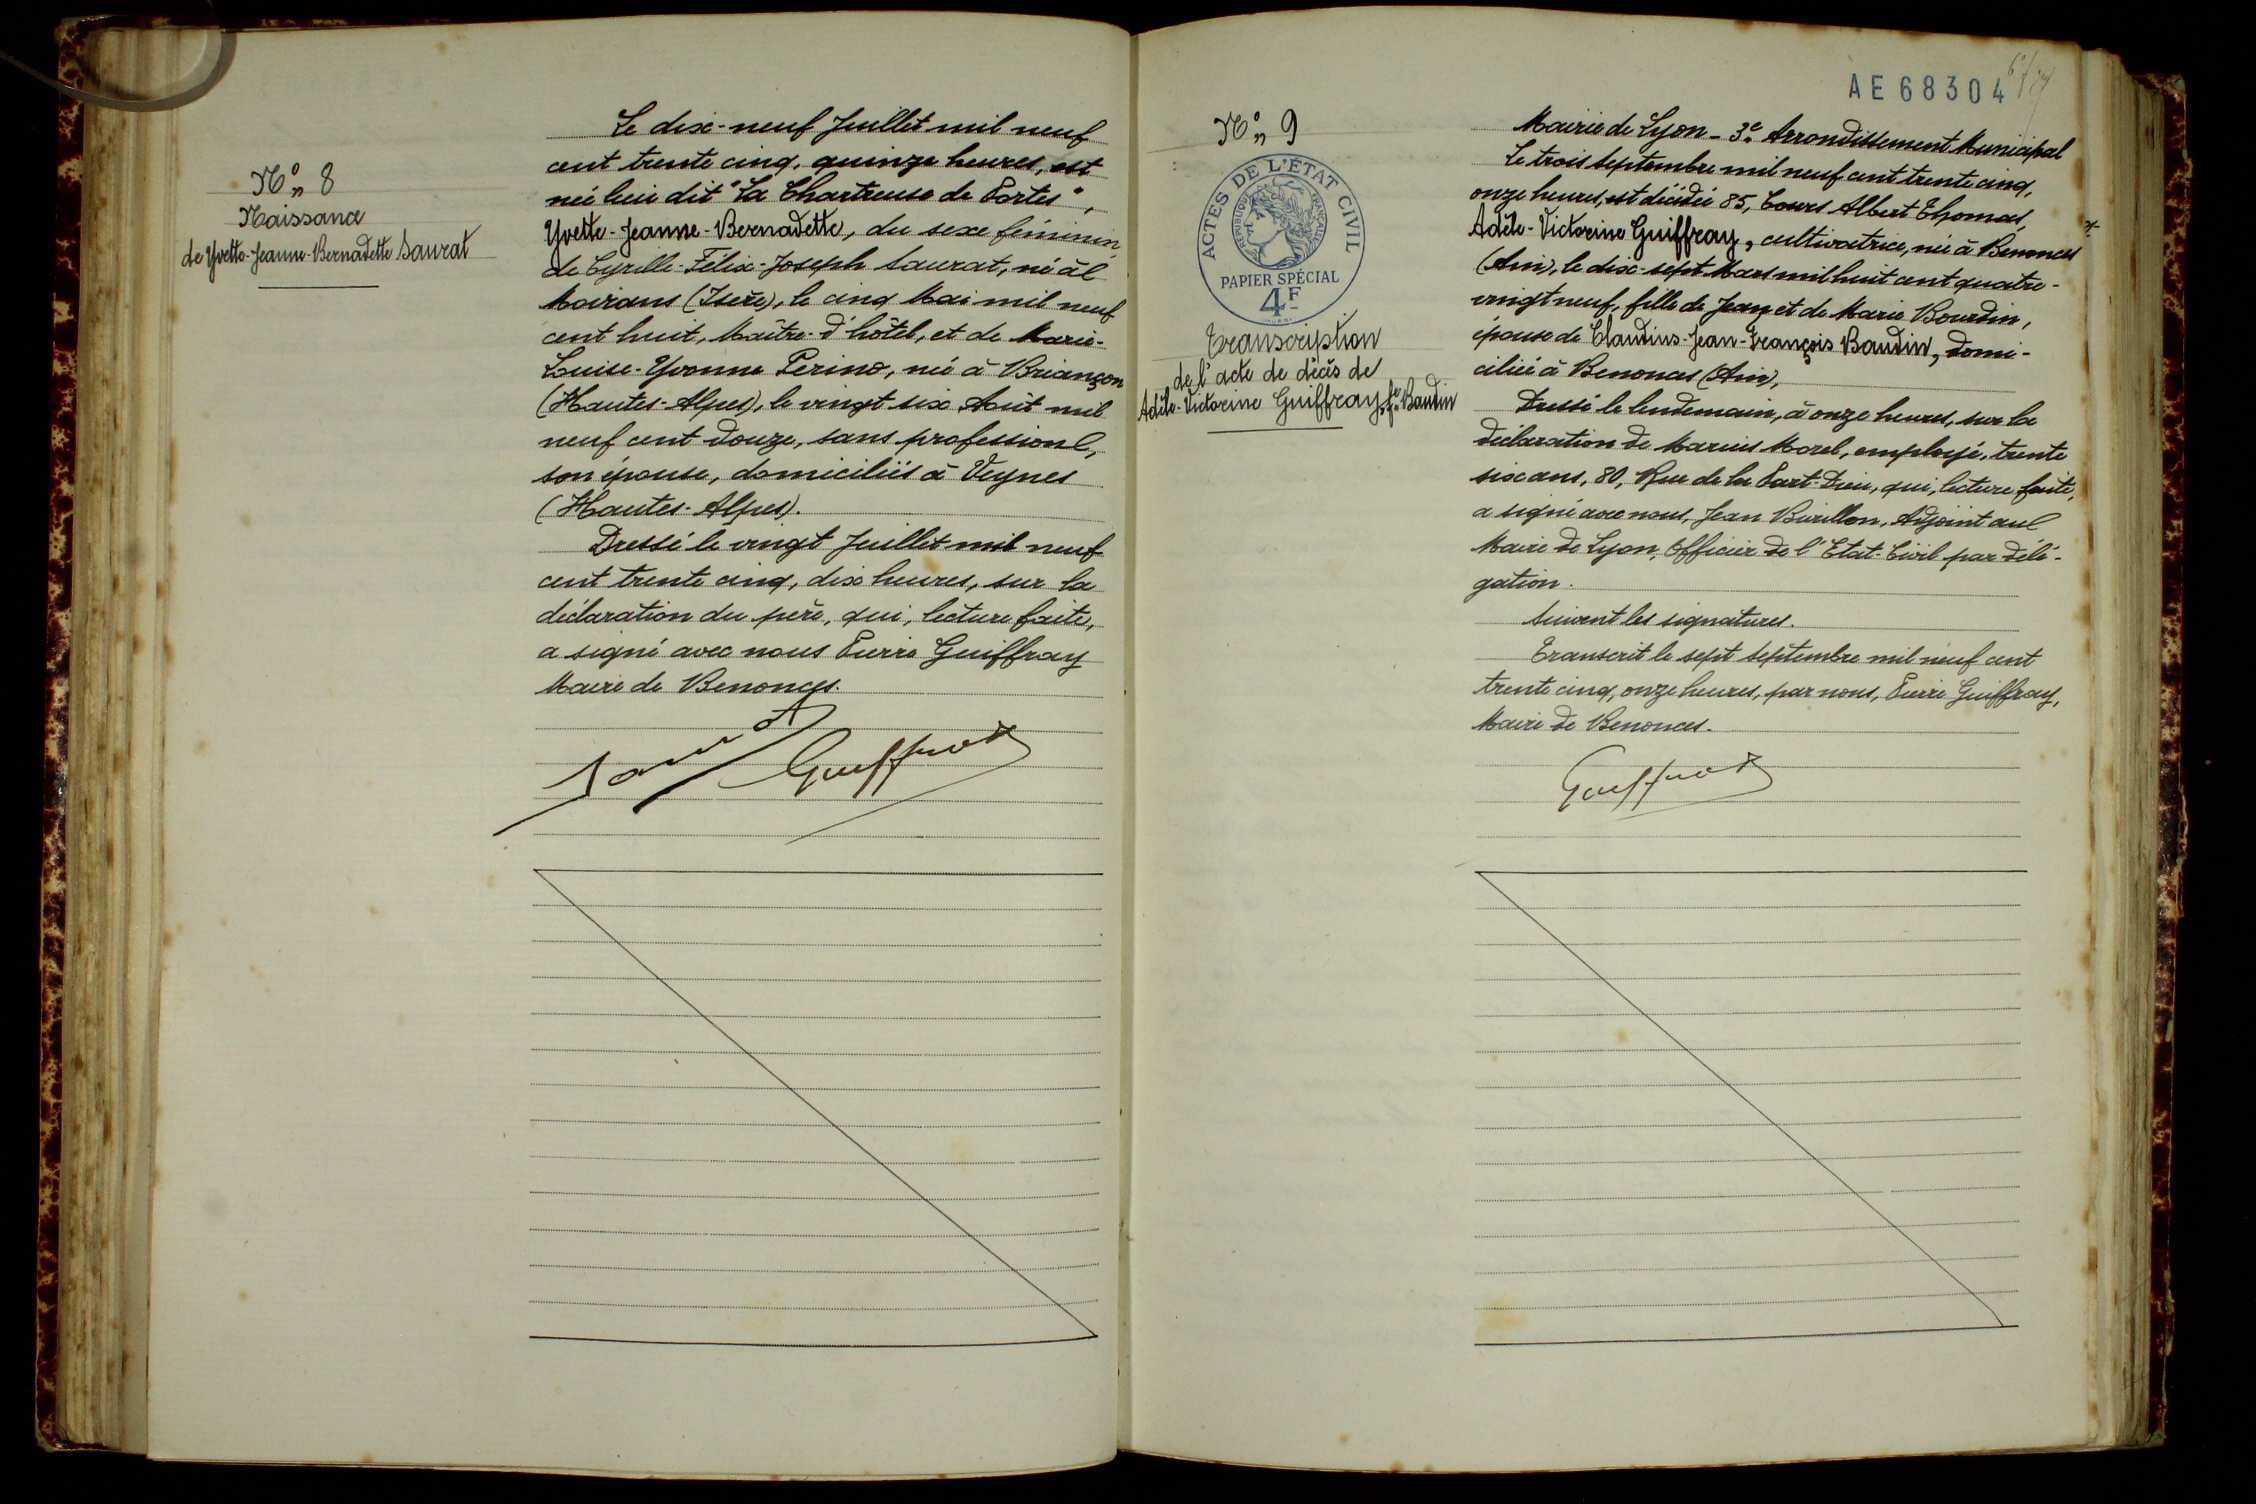 N° 8
Naissance
de Yvette-Jeanne-Bernadette Saurat
Le dix-neuf Juillet mil neuf
cent trente cinq, quinze heures, est
née lieu dit "La Chartreuse de Portes",
Yvette-Jeanne-Bernadette, du sexe féminin,
de Cyrille-Félix-Joseph Saurat, né à
Moirans (Isère), le cinq Mai mil neuf
cent huit, Maître-d'hôtel, et de Marie-
Louise-Yvonne Perino, née à Briançon
(Hautes-Alpes), le vingt six Août mil
neuf cent douze, sans profession,
son épouse, domiciliés à Veynes
(Hautes-Alpes).
Dressé le vingt Juillet mil neuf
cent trente cinq, dix heures, sur la
déclaration du père, qui, lecture faite,
a signé avec nous Pierre Guiffray
Maire de Benonces.
Saurat Guiffray
AE 68304
N° 9
ACTES DE L'ÉTAT CIVIL
RÉPUBLIQUE FRANÇAISE
PAPIER SPÉCIAL
4F
Transcription
de l'acte de décès de
Adèle-Victorine Guiffray, fe Baudin
Mairie de Lyon - 3e Arrondissement Municipal
Le trois Septembre mil neuf cent trente cinq,
onze heures, est décédée 85, Cours Albert Thomas,
Adèle-Victorine Guiffray, cultivatrice, née à Benonces
(Ain), le dix-sept Mars mil huit cent quatre-
vingt neuf, fille de Jean et de Marie Bourdin,
épouse de Claudius-Jean-François Baudin, domi-
ciliée à Benonces (Ain),
Dressé le lendemain, à onze heures, sur la
déclaration de Marius Morel, employé, trente
six ans, 80, Rue de la Part-Dieu, qui, lecture faite,
a signé avec nous, Jean Burillon, Adjoint au
Maire de Lyon, Officier de l'Etat-Civil par délé-
gation.
Suivent les signatures.
Transcrit le sept Septembre mil neuf cent
trente cinq, onze heures, par nous, Pierre Guiffray,
Maire de Benonces.
Guiffray